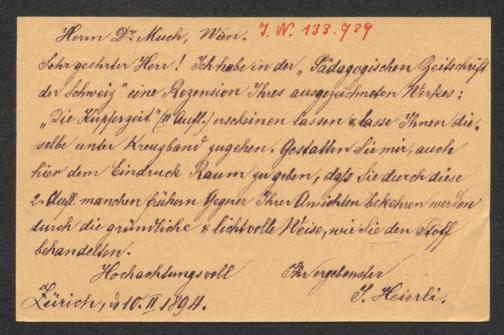 Herrn Dr. Much, Wien.
J. N. 133.739
Sehr geehrter Herr! Ich habe in der „Pädagogischen Zeitschrift
der Schweiz" eine Rezension Ihres ausgezeichneten Werkes:
„Die Kupferzeit" (II Aufl.) erscheinen lassen & lasse Ihnen die-
selbe unter Kreuzband zugehen. Gestatten Sie mir, auch
hier dem Eindruck Raum zu geben, daß Sie durch diese
2. Aufl. manchen frühern Gegner Ihrer Ansichten bekehren werden
durch die gründliche & lichtvolle Weise, wie Sie den Stoff
behandelten.
Hochachtungsvoll Ihr ergebenster
J. Heierli.
Zürich, 10. II 1894.